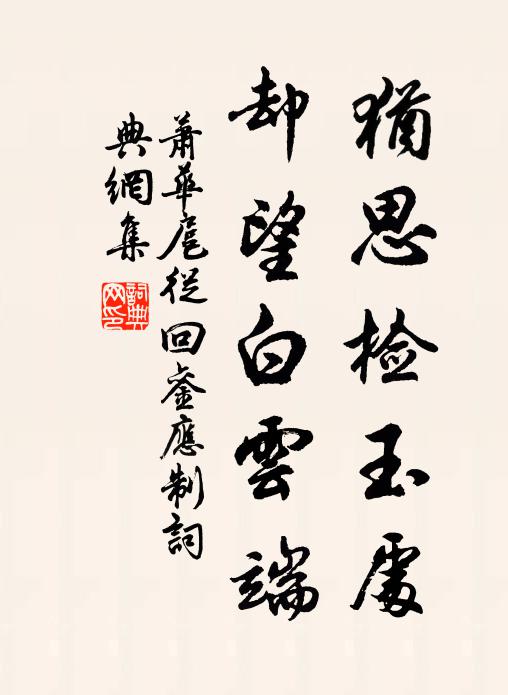 猶思检玉處
却望白雲端
蕭華扈從回銮應制詞
典網集
詞典
网印